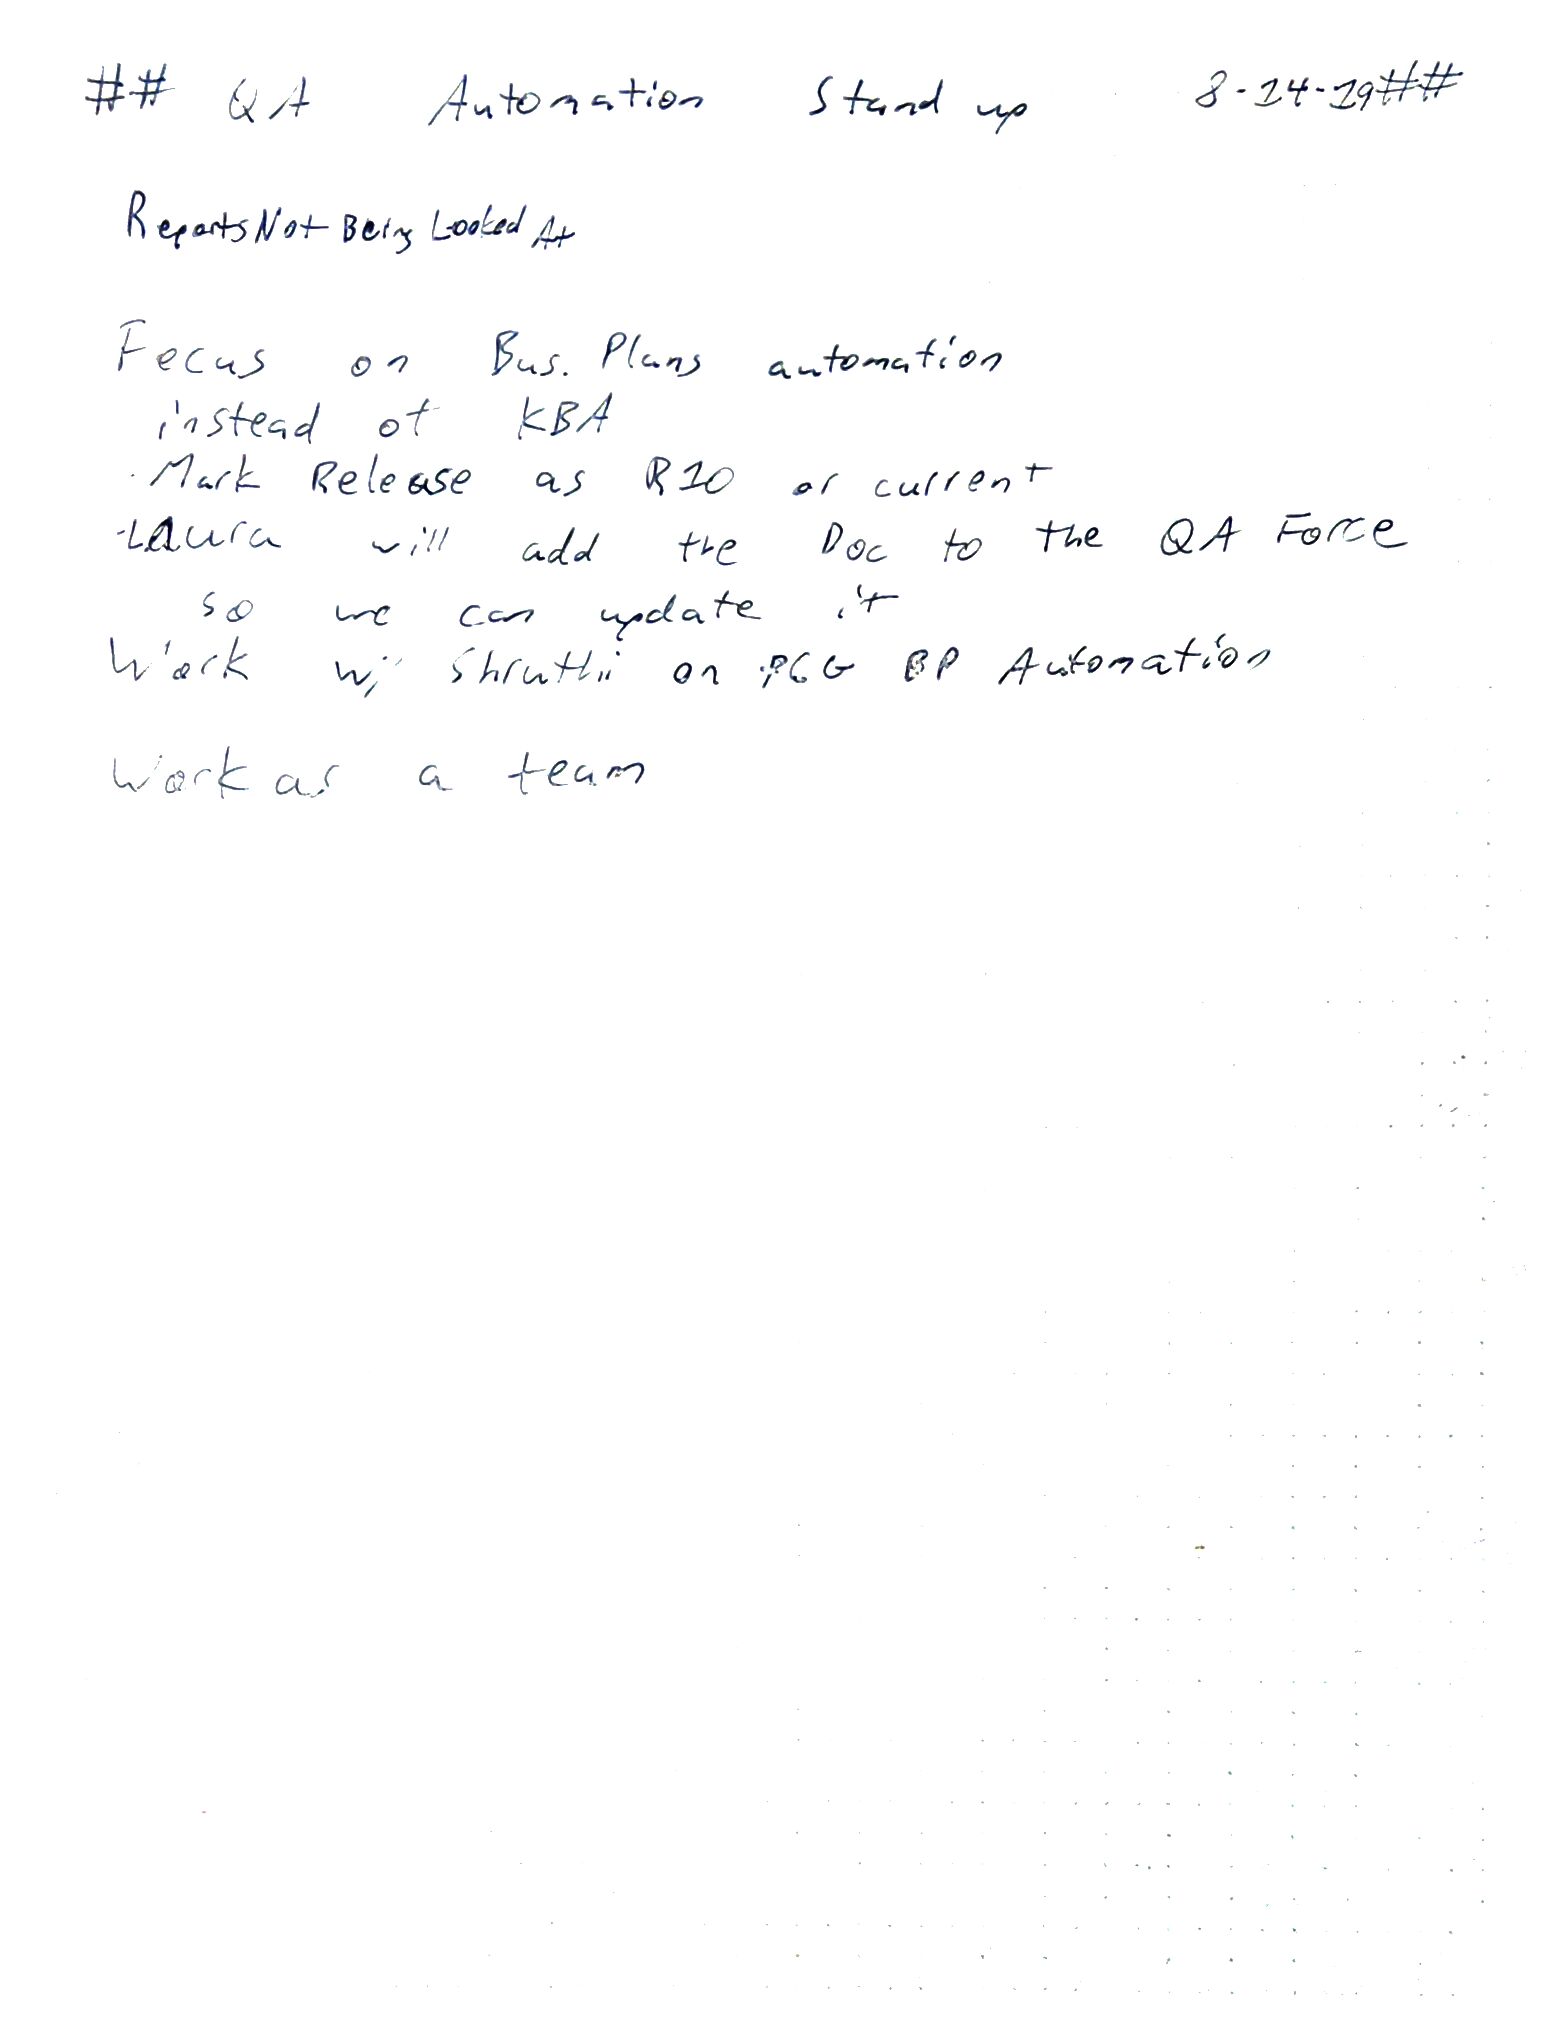 ## QA Automation Stand up 8-14-19##
Reports Not Being Looked At
Focus on Bus. Plans automation
instead of KBA
- Mark Release as R10 or current
- Laura will add the Doc to the QA Force
so we can update it
Work w/ Shruthi on PCG BP Automation
Work as a team